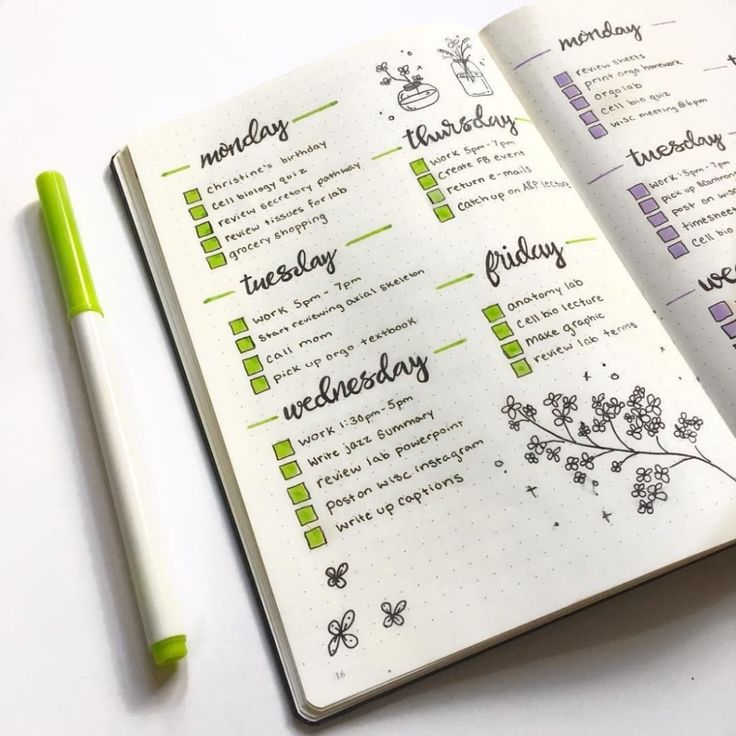 monday
christine's birthday
cell biology quiz
review secretory pathway
review tissues for lab
grocery shopping
tuesday
work 5pm - 7pm
start reviewing axial skeleton
call mom
pick up orgo textbook
wednesday
work 1:30pm - 5pm
write jazz summary
review lab powerpoint
post on wisc instagram
write up captions
thursday
work 5pm - 7pm
create FB event
return e-mails
catch up on A&P lecture
friday
anatomy lab
cell bio lecture
make graphic
review lab terms
16
monday
review sheets
print orgo homework
orgo lab
cell bio quiz
wisc meeting @ 6pm
tuesday
work: 5pm - 7pm
pick up
post on wisc
timesheets
cell bio
we